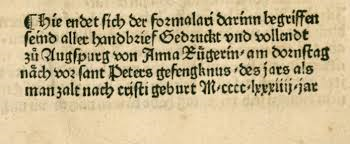 ¶ Hie endet sich der formalari darinn begriffen
seind aller handbrief Gedruckt vnd vollendt
zů Augſpurg von Anna Rügerin, am dornſtag
nåch vor ſant Peters gefengknus, des jars als
man zalt nach criſti geburt M.cccc.lxxxiiij.jar